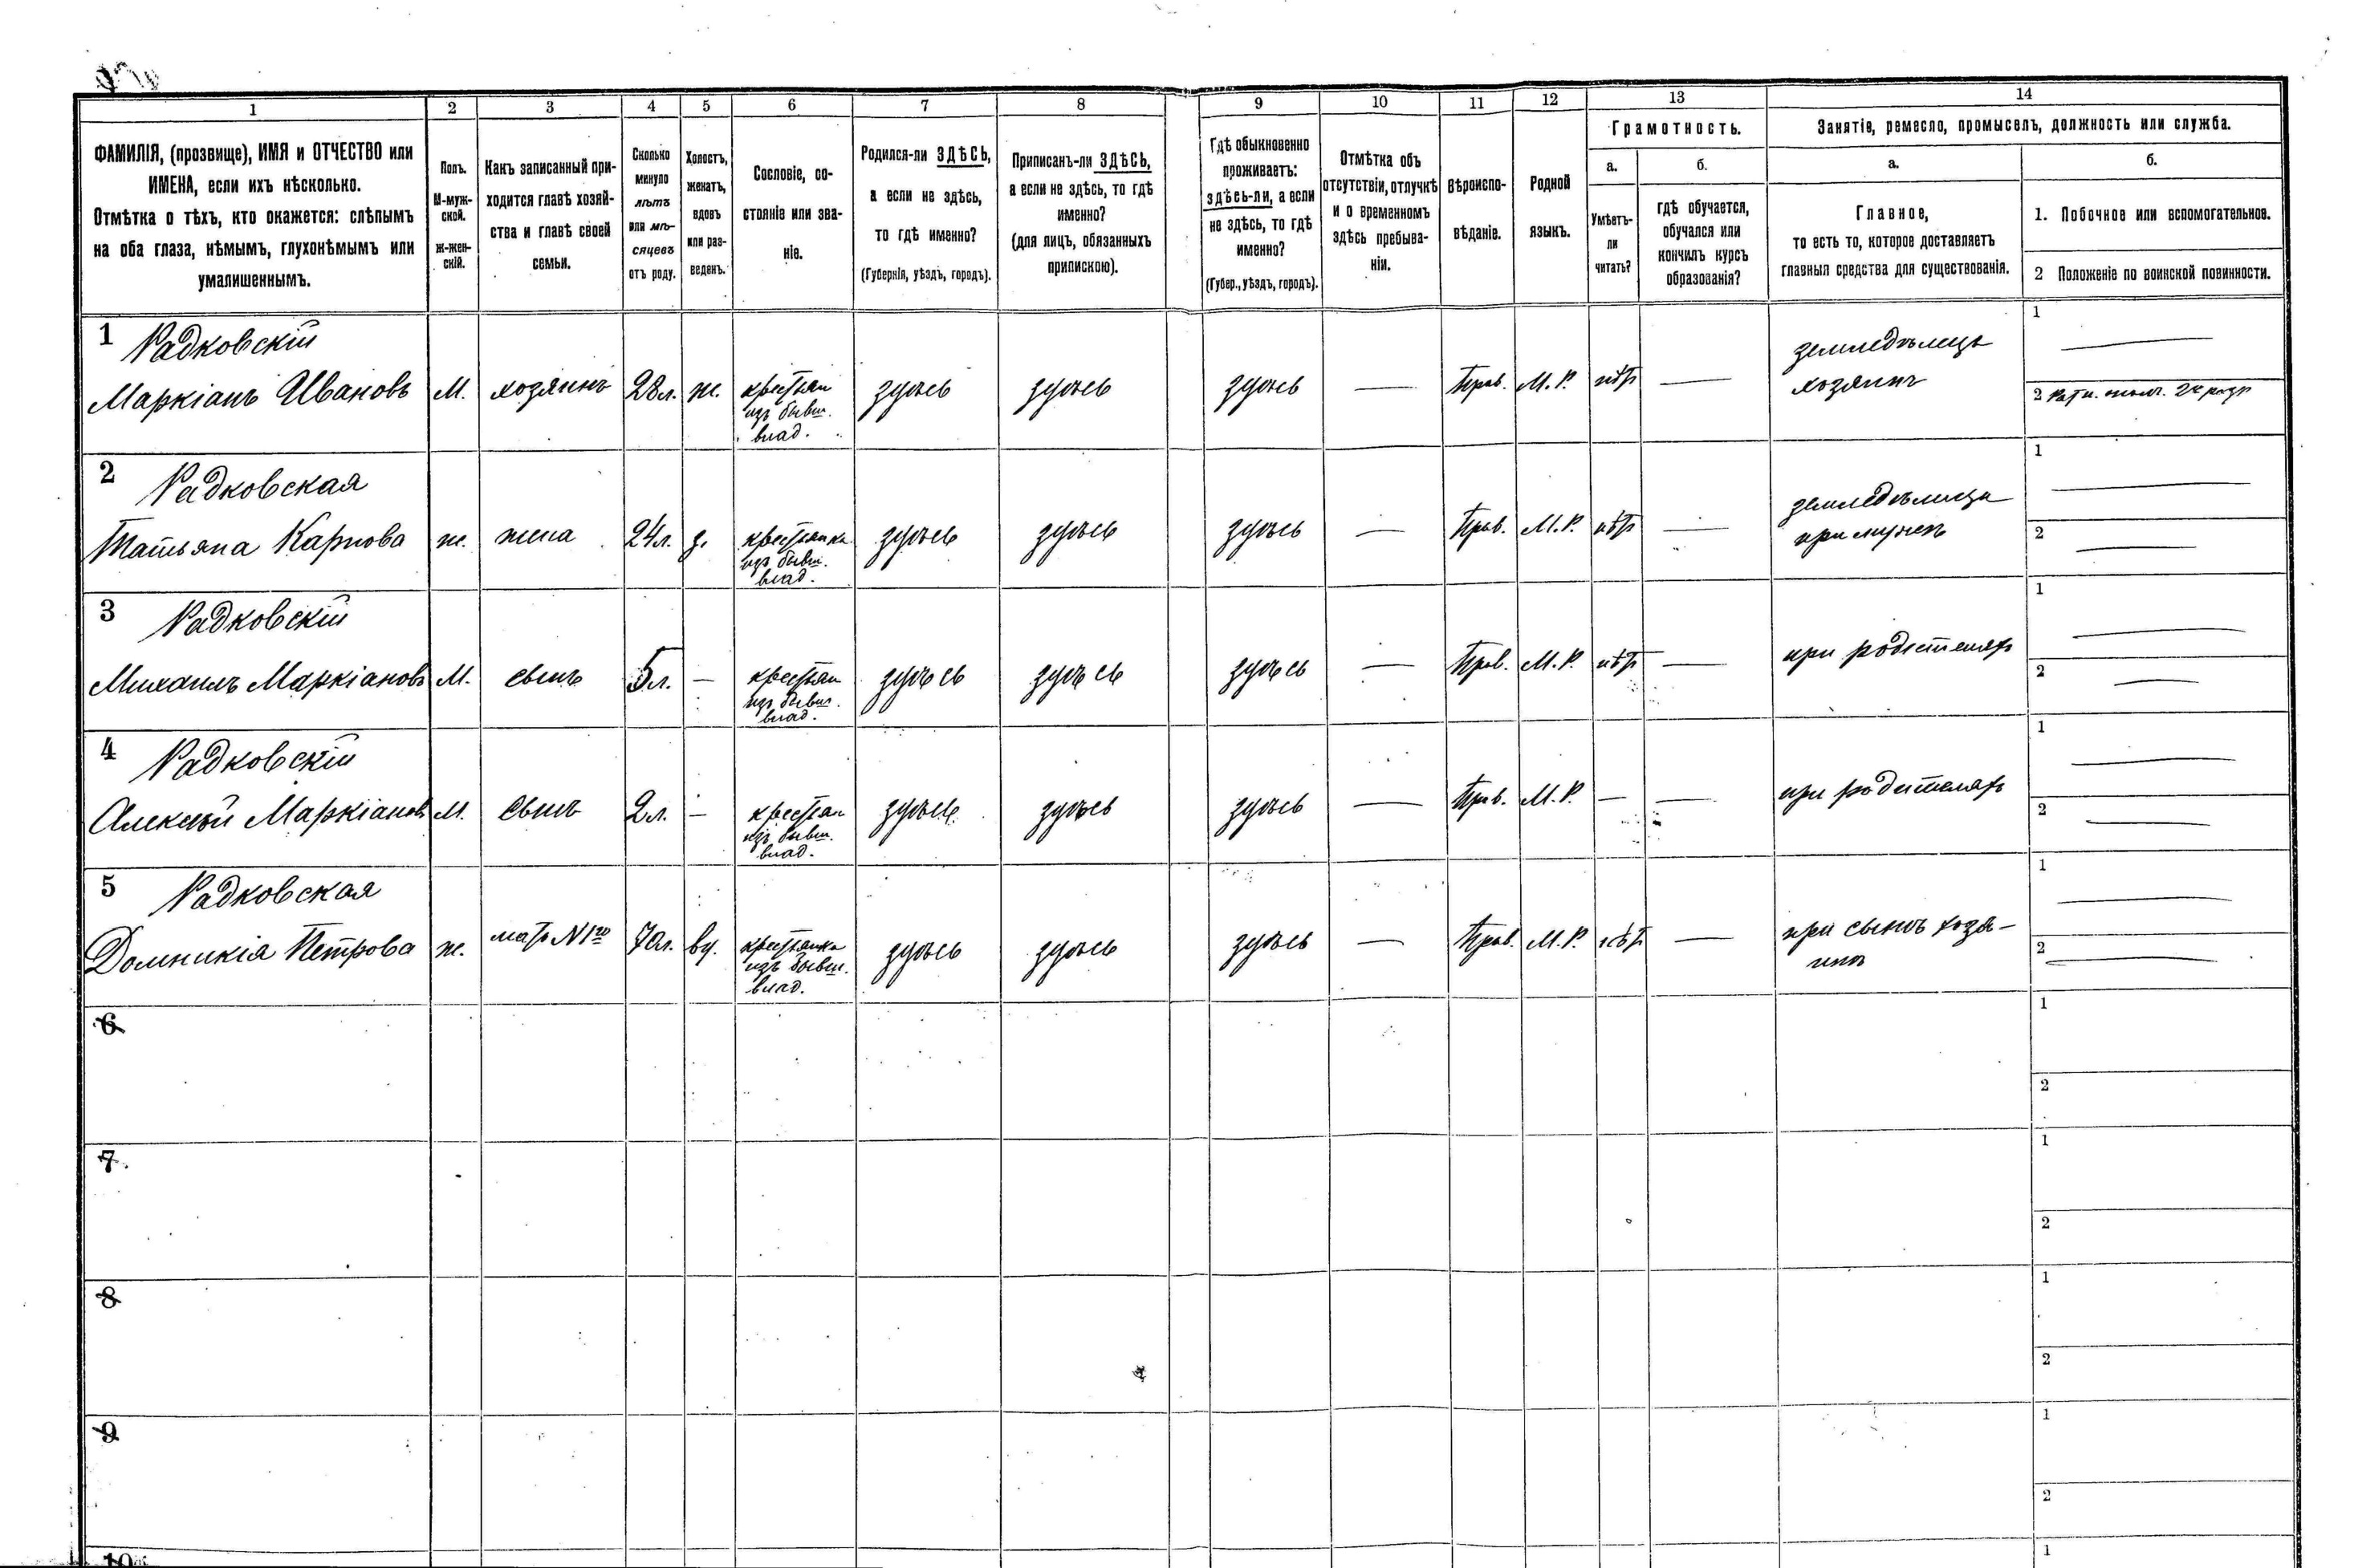 1
2
3
4
5
6
7
8
9
10
11
12
13
14
ФАМИЛІЯ, (прозвище), ИМЯ и ОТЧЕСТВО или
ИМЕНА, если ихъ нѣсколько.
Отмѣтка о тѣхъ, кто окажется: слѣпымъ
на оба глаза, нѣмымъ, глухонѣмымъ или
умалишеннымъ.
Полъ.
М-муж-
ской.
ж-жен-
скій.
Какъ записанный при-
ходится главѣ хозяй-
ства и главѣ своей
семьи.
Сколько
минуло
лѣтъ
или мѣ-
сяцевъ
отъ роду.
Холостъ,
женатъ,
вдовъ
или раз-
веденъ.
Сословіе, со-
стояніе или зва-
ніе.
Родился-ли ЗДѢСЬ,
а если не здѣсь,
то гдѣ именно?
(Губернія, уѣздъ, городъ).
Приписанъ-ли ЗДѢСЬ,
а если не здѣсь, то гдѣ
именно?
(для лицъ, обязанныхъ
припискою).
Гдѣ обыкновенно
проживаетъ:
здѣсь-ли, а если
не здѣсь, то гдѣ
именно?
(Губер., уѣздъ, городъ).
Отмѣтка объ
отсутствіи, отлучкѣ
и о временномъ
здѣсь пребыва-
ніи.
Вѣроиспо-
вѣданіе.
Родной
языкъ.
Грамотность.
а.
Умѣетъ-
ли
читать?
б.
гдѣ обучается,
обучался или
кончилъ курсъ
образованія?
Занятіе, ремесло, промыселъ, должность или служба.
а.
Главное,
то есть то, которое доставляетъ
главныя средства для существованія.
б.
1. Побочное или вспомогательное.
2 Положеніе по воинской повинности.
1
Радковскій
Маркіанъ Ивановъ
М.
хозяинъ
28 л.
ж.
крестьян
изъ бывш.
влад.
здѣсь
здѣсь
здѣсь
—
Прав.
М. Р.
нѣт
—
земледѣлецъ
хозяинъ
1
—
2 Ратн. опол. 2го разр
2
Радковская
Татьяна Карпова
ж.
жена
24 л.
з.
крестьянка
изъ бывш.
влад.
здѣсь
здѣсь
здѣсь
—
Прав.
М. Р.
нѣт
—
земледѣлица
при мужѣ
1
—
2
—
3
Радковскій
Михаилъ Маркіановъ
М.
сынъ
5 л.
—
крестьян
изъ бывш.
влад.
здѣсь
здѣсь
здѣсь
—
Прав.
М. Р.
нѣт
—
при родителях
1
—
2
—
4
Радковскій
Алексѣй Маркіановъ
М.
сынъ
2 л.
—
крестьян
изъ бывш.
влад.
здѣсь
здѣсь
здѣсь
—
Прав.
М. Р.
—
—
при родителях
1
—
2
—
5
Радковская
Домникія Петрова
ж.
мать N 1го
70 л.
вд.
крестьянка
изъ бывш.
влад.
здѣсь
здѣсь
здѣсь
—
Прав.
М. Р.
нѣт
—
при сынѣ хозя-
инѣ
1
—
2
—
6
1
2
7
1
2
8
1
2
9
1
2
10
1